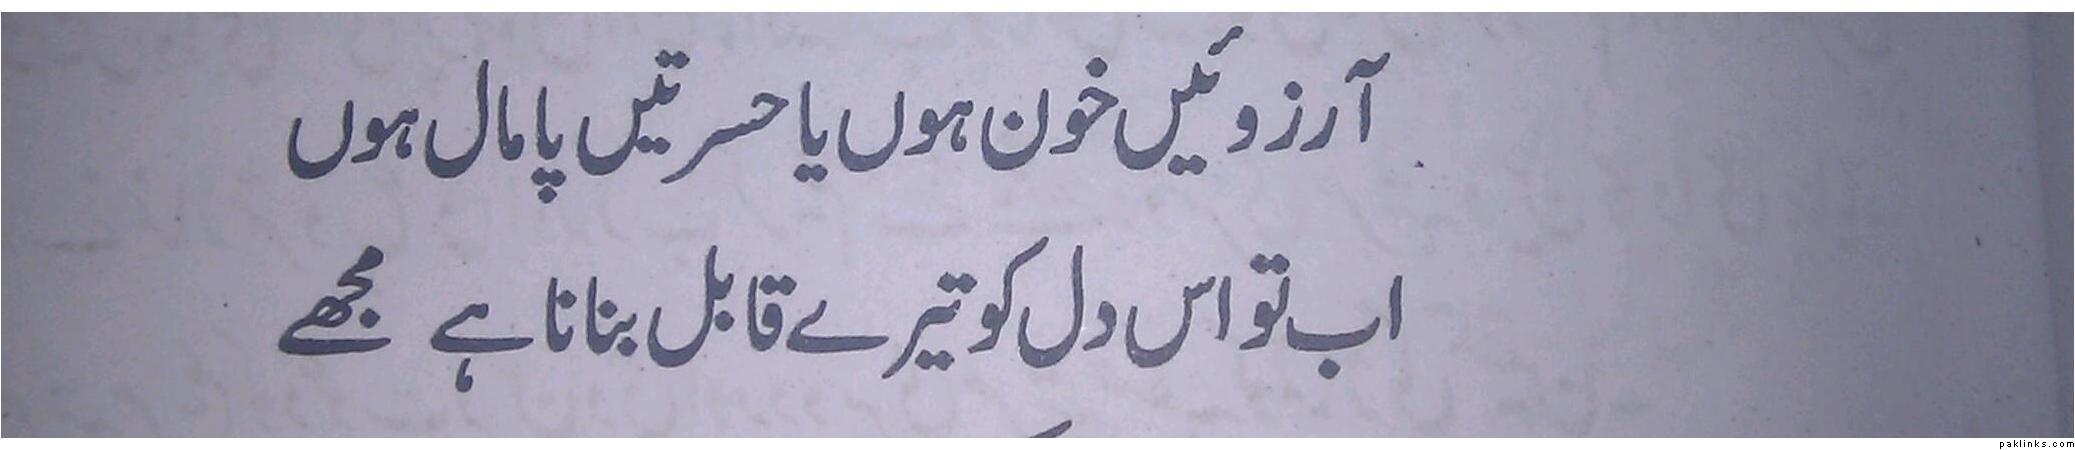 آرزوئیں خون ہوں یا حسرتیں پامال ہوں
اب تو اس دل کو تیرے قابل بنانا ہے مجھے
paklinks.com